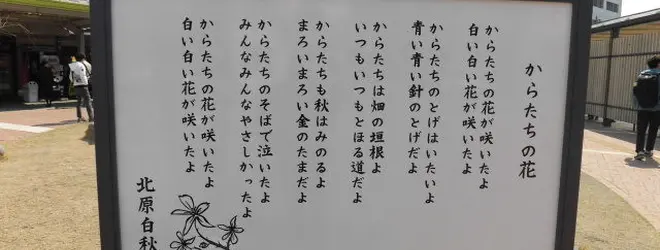 からたちの花
からたちの花が咲いたよ
白い白い花が咲いたよ
からたちのとげはいたいよ
青い青い針のとげだよ
からたちは畑の垣根よ
いつもいつもとほる道だよ
からたちも秋はみのるよ
まろいまろい金のたまだよ
からたちのそばで泣いたよ
みんなみんなやさしかったよ
からたちの花が咲いたよ
白い白い花が咲いたよ
北原白秋